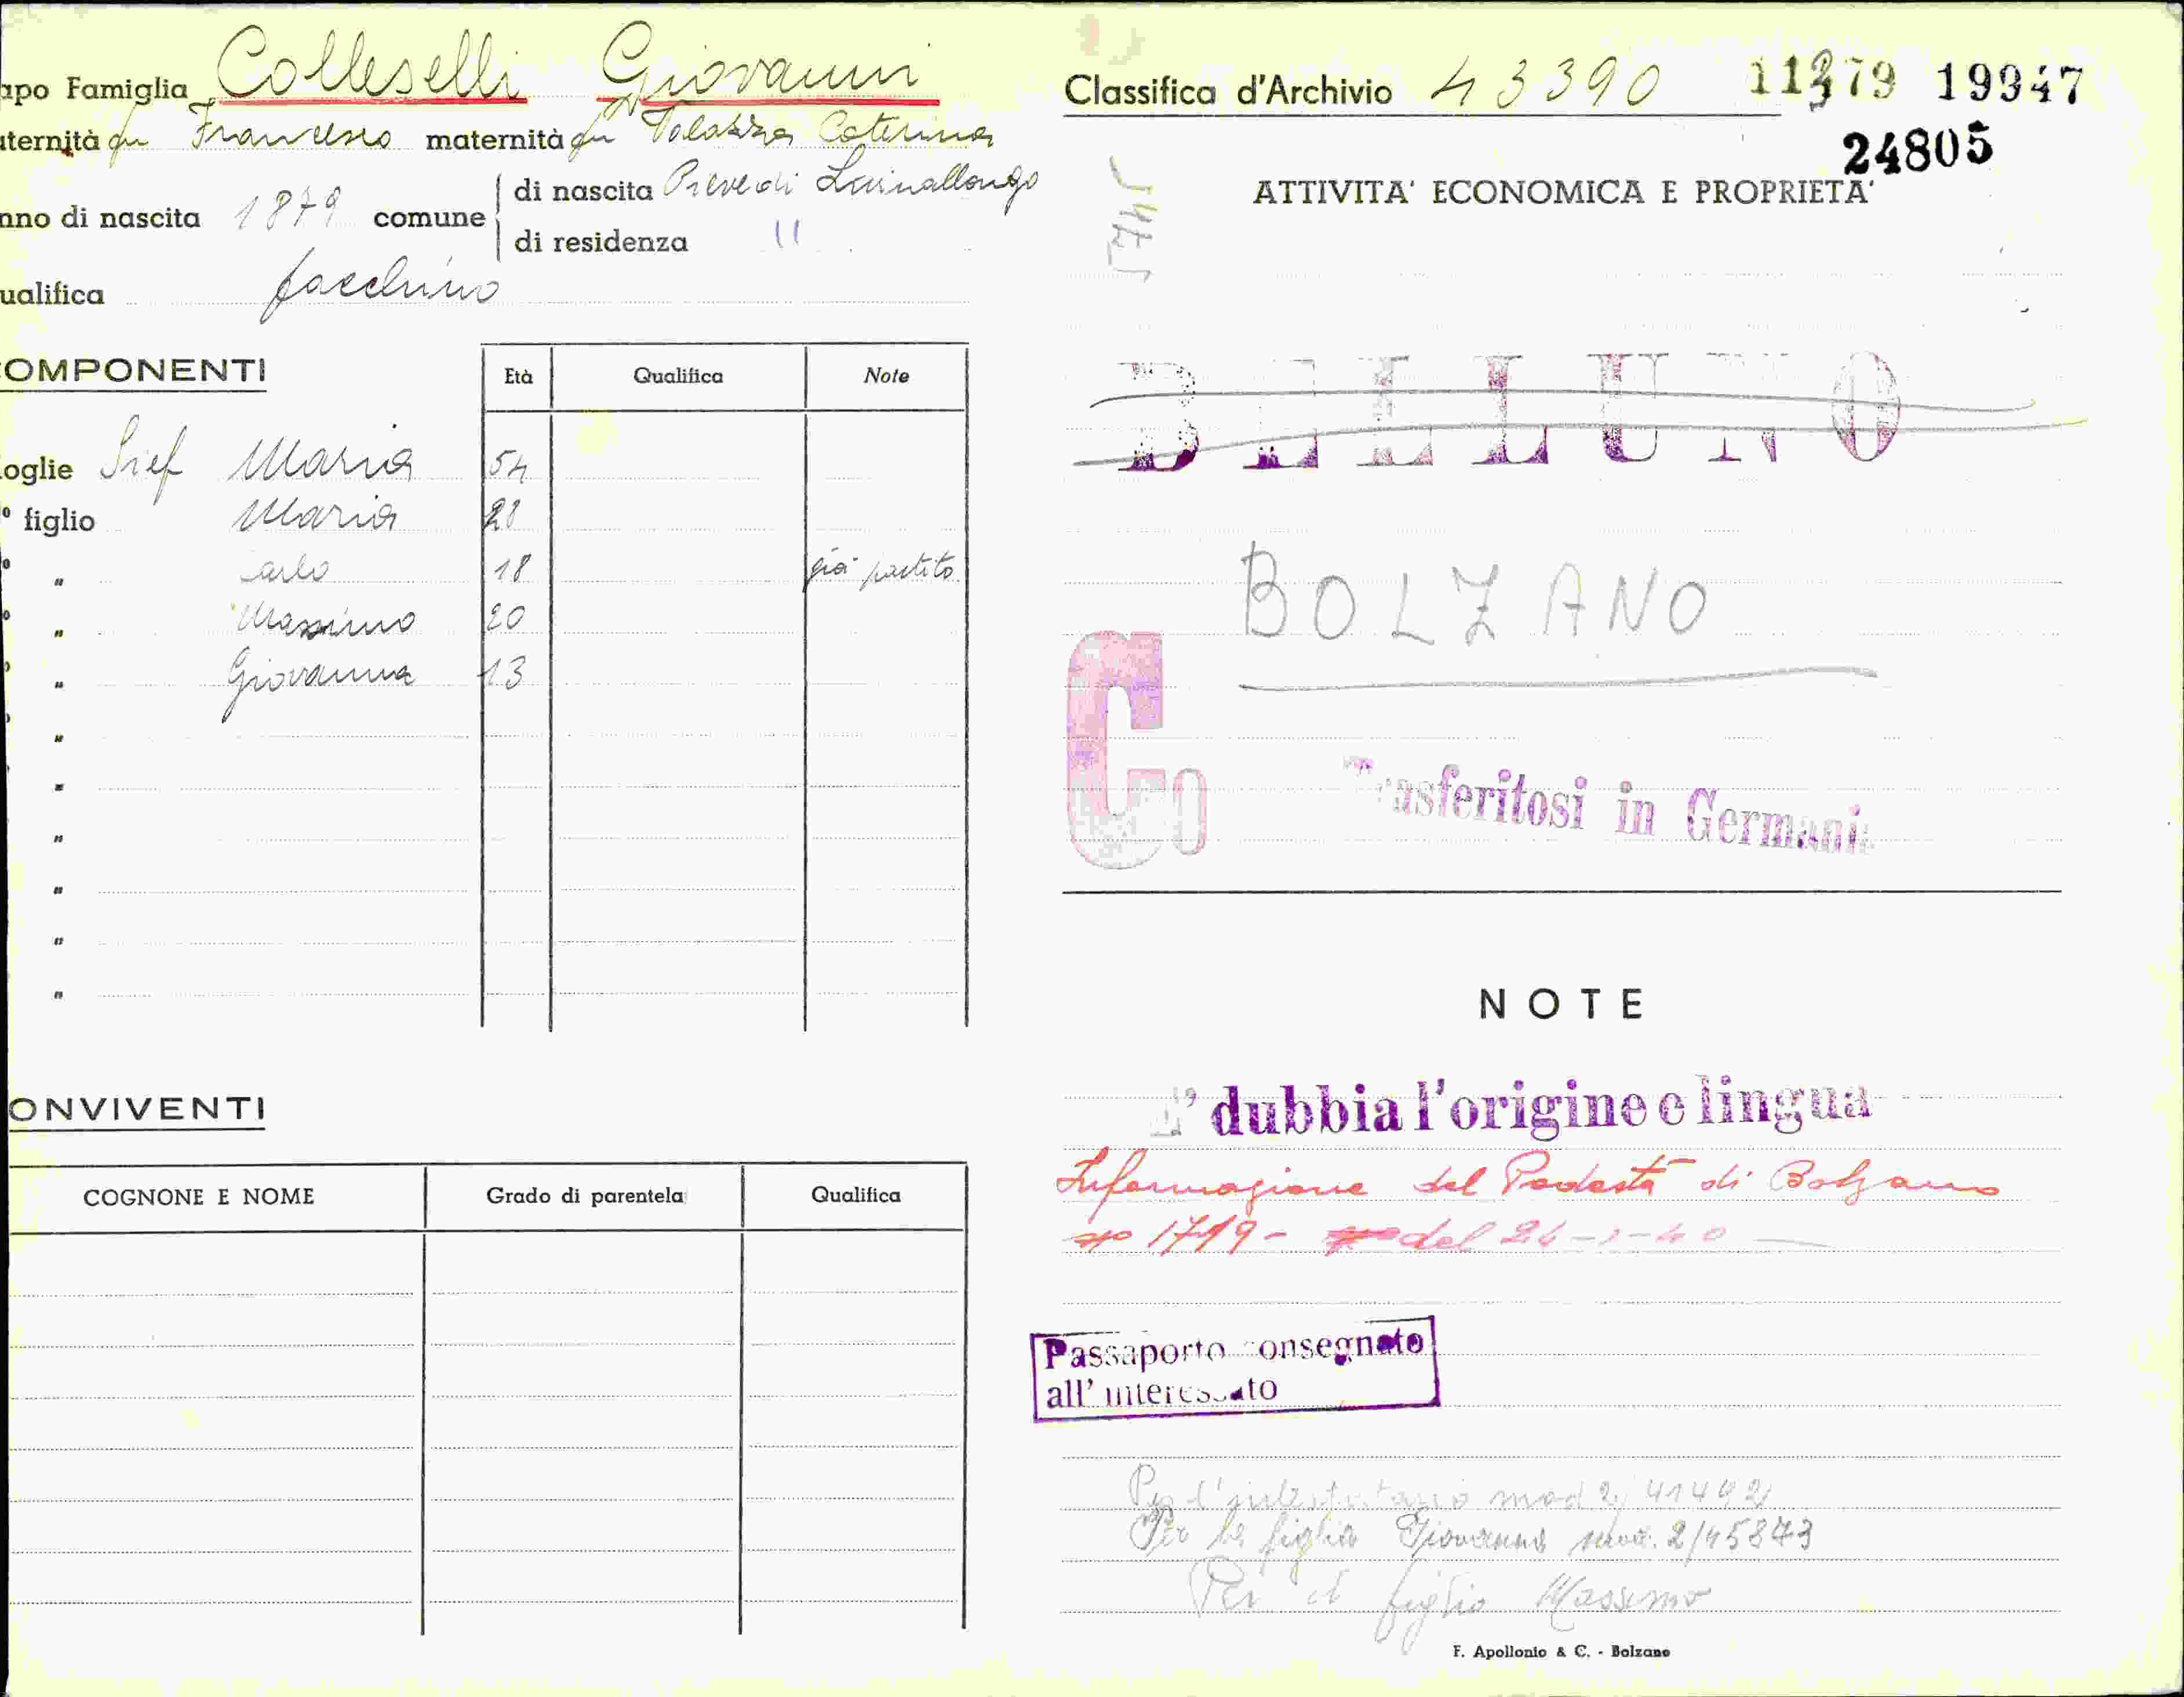 apo Famiglia Colleselli Giovanni
ternità fu Francesco maternità fu Caterina
nno di nascita 1879 comune
di nascita Pieve di Livinallongo
di residenza "
ualifica facchino
OMPONENTI Età Qualifica Note
oglie Sief Maria 54
° figlio Maria 28
° " Carlo 18 già partito
° " Massimo 20
° " Giovanna 13
"
"
"
"
"
"
ONVIVENTI
COGNONE E NOME Grado di parentela Qualifica
Classifica d'Archivio 43390 11379 19947
24805
ATTIVITA' ECONOMICA E PROPRIETA'
BELLUNO
BOLZANO
Co
Trasferitosi in Germani
NOTE
E' dubbia l'origine e lingua
Informazione del Podestà di Bolzano
n° 1719 - del 24-1-40
Passaporto consegnato
all' interessato
Per l'intestatario mod 2/ 41492
Per la figlia Giovanna mod. 2/45873
Per il figlio Massimo
F. Apollonio & C. - Bolzano